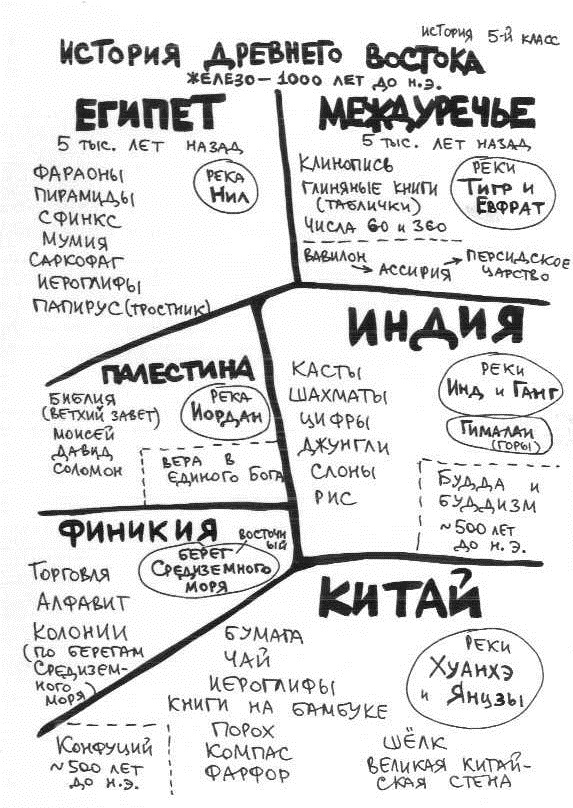 ИСТОРИЯ 5-Й КЛАСС
ИСТОРИЯ ДРЕВНЕГО ВОСТОКА
ЖЕЛЕЗО – 1000 ЛЕТ ДО Н.Э.
ЕГИПЕТ
5 ТЫС. ЛЕТ НАЗАД
ФАРАОНЫ
ПИРАМИДЫ
СФИНКС
МУМИЯ
САРКОФАГ
ИЕРОГЛИФЫ
ПАПИРУС (ТРОСТНИК)
РЕКА
НИЛ
МЕЖДУРЕЧЬЕ
5 ТЫС. ЛЕТ НАЗАД
КЛИНОПИСЬ
ГЛИНЯНЫЕ КНИГИ
(ТАБЛИЧКИ)
ЧИСЛА 60 И 360
РЕКИ
ТИГР И
ЕВФРАТ
ВАВИЛОН → АССИРИЯ → ПЕРСИДСКОЕ
ЦАРСТВО
ПАЛЕСТИНА
БИБЛИЯ
(ВЕТХИЙ ЗАВЕТ)
МОИСЕЙ
ДАВИД
СОЛОМОН
РЕКА
ИОРДАН
ВЕРА В
ЕДИНОГО БОГА
ИНДИЯ
КАСТЫ
ШАХМАТЫ
ЦИФРЫ
ДЖУНГЛИ
СЛОНЫ
РИС
РЕКИ
ИНД И ГАНГ
ГИМАЛАИ
(ГОРЫ)
БУДДА И
БУДДИЗМ
~500 ЛЕТ
ДО Н.Э.
ФИНИКИЯ
ВОСТОЧНЫЙ
БЕРЕГ
СРЕДИЗЕМНОГО
МОРЯ
ТОРГОВЛЯ
АЛФАВИТ
КОЛОНИИ
(ПО БЕРЕГАМ
СРЕДИЗЕМ-
НОГО
МОРЯ)
КИТАЙ
БУМАГА
ЧАЙ
ИЕРОГЛИФЫ
КНИГИ НА БАМБУКЕ
ПОРОХ
КОМПАС
ФАРФОР
РЕКИ
ХУАНХЭ
И ЯНЦЗЫ
ШЁЛК
ВЕЛИКАЯ КИТАЙ-
СКАЯ СТЕНА
КОНФУЦИЙ
~500 ЛЕТ
ДО Н.Э.